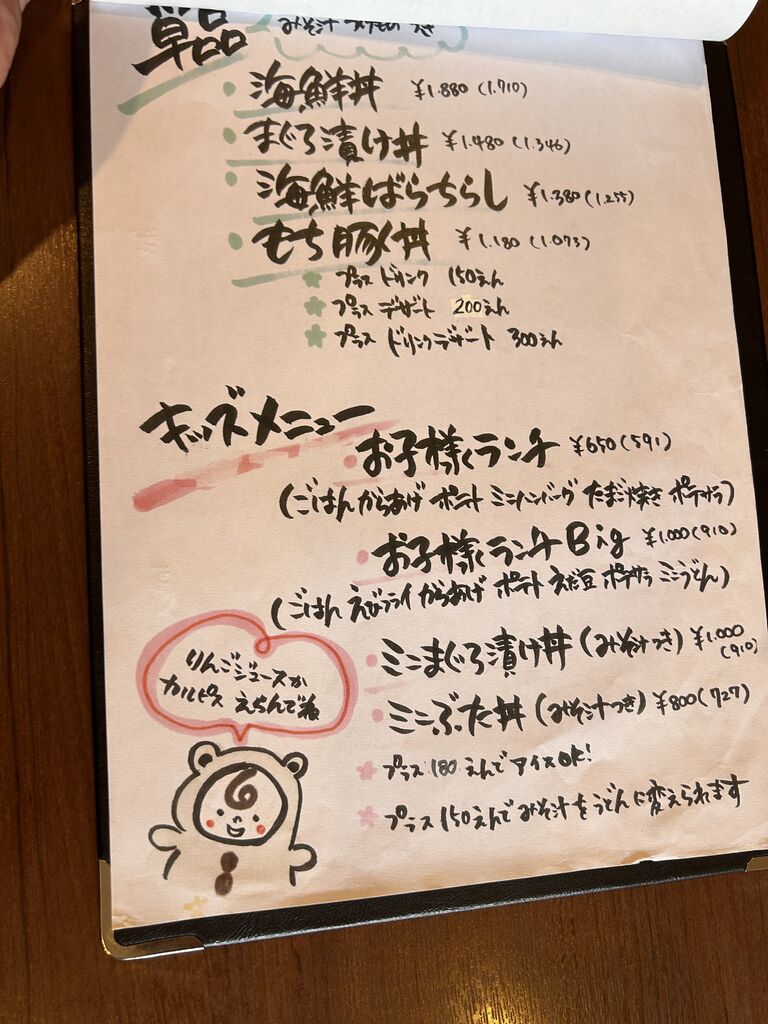 単品 みそ汁 つけもの つき
・海鮮丼 ¥1.880(1.710)
・まぐろ漬け丼 ¥1.480(1.346)
・海鮮ばらちらし ¥1.380(1.255)
・もち豚丼 ¥1.180(1.073)
プラス ドリンク 150えん
プラス デザート 200えん
プラス ドリンクデザート 300えん
キッズメニュー
・お子様ランチ ¥650(591)
(ごはん からあげ ポテト ミニハンバーグ たまご焼き ポテサラ)
・お子様ランチBig ¥1.000(910)
(ごはん えびフライ からあげ ポテト えだ豆 ポテサラ ミニうどん)
・ミニまぐろ漬け丼(みそ汁つき) ¥1.000(910)
・ミニぶた丼(みそ汁つき) ¥800(727)
プラス 180えんでアイスOK!
プラス150えんでみそ汁をうどんに変えられます
りんごジュースか
カルピス えらんでね